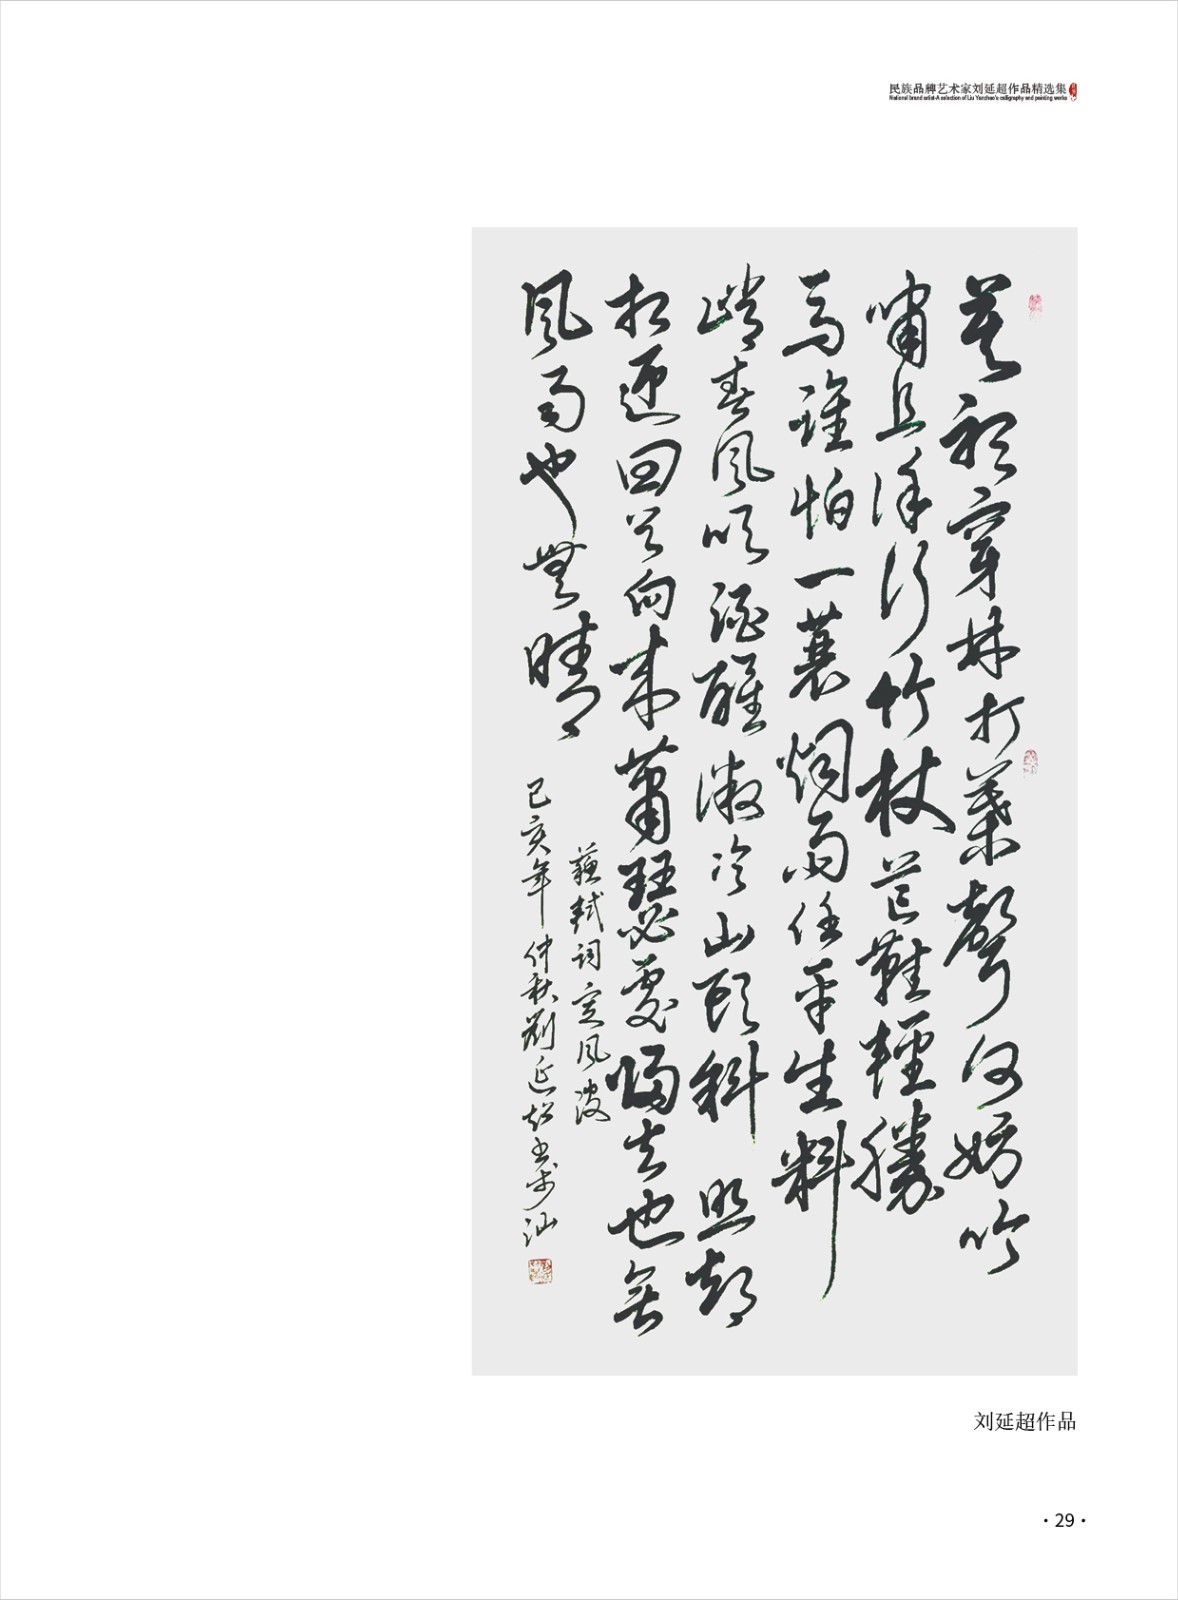 民族品牌艺术家刘延超作品精选集
National brand artist-A selection of Liu Yanchao's calligraphy and painting works
莫聽穿林打葉聲何妨吟
嘯且徐行竹杖芒鞋輕勝
馬誰怕一蓑烟雨任平生料
峭春風吹酒醒微冷山頭斜照却
相迎回首向来蕭瑟處歸去也無
風雨也無晴
蘇軾詞定風波
己亥年仲秋劉延超書於汕
刘延超作品
·29·